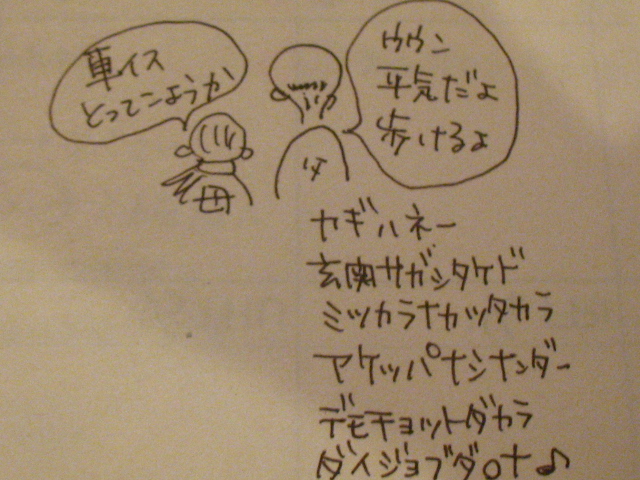 車イス
とってこようか
ウウン
平気だよ
歩けるよ
母
父
カギハネー
玄関サガシタケド
ミツカラナカッタカラ
アケッパナシナンダー
デモチョットダカラ
ダイジョブダヨナ♪